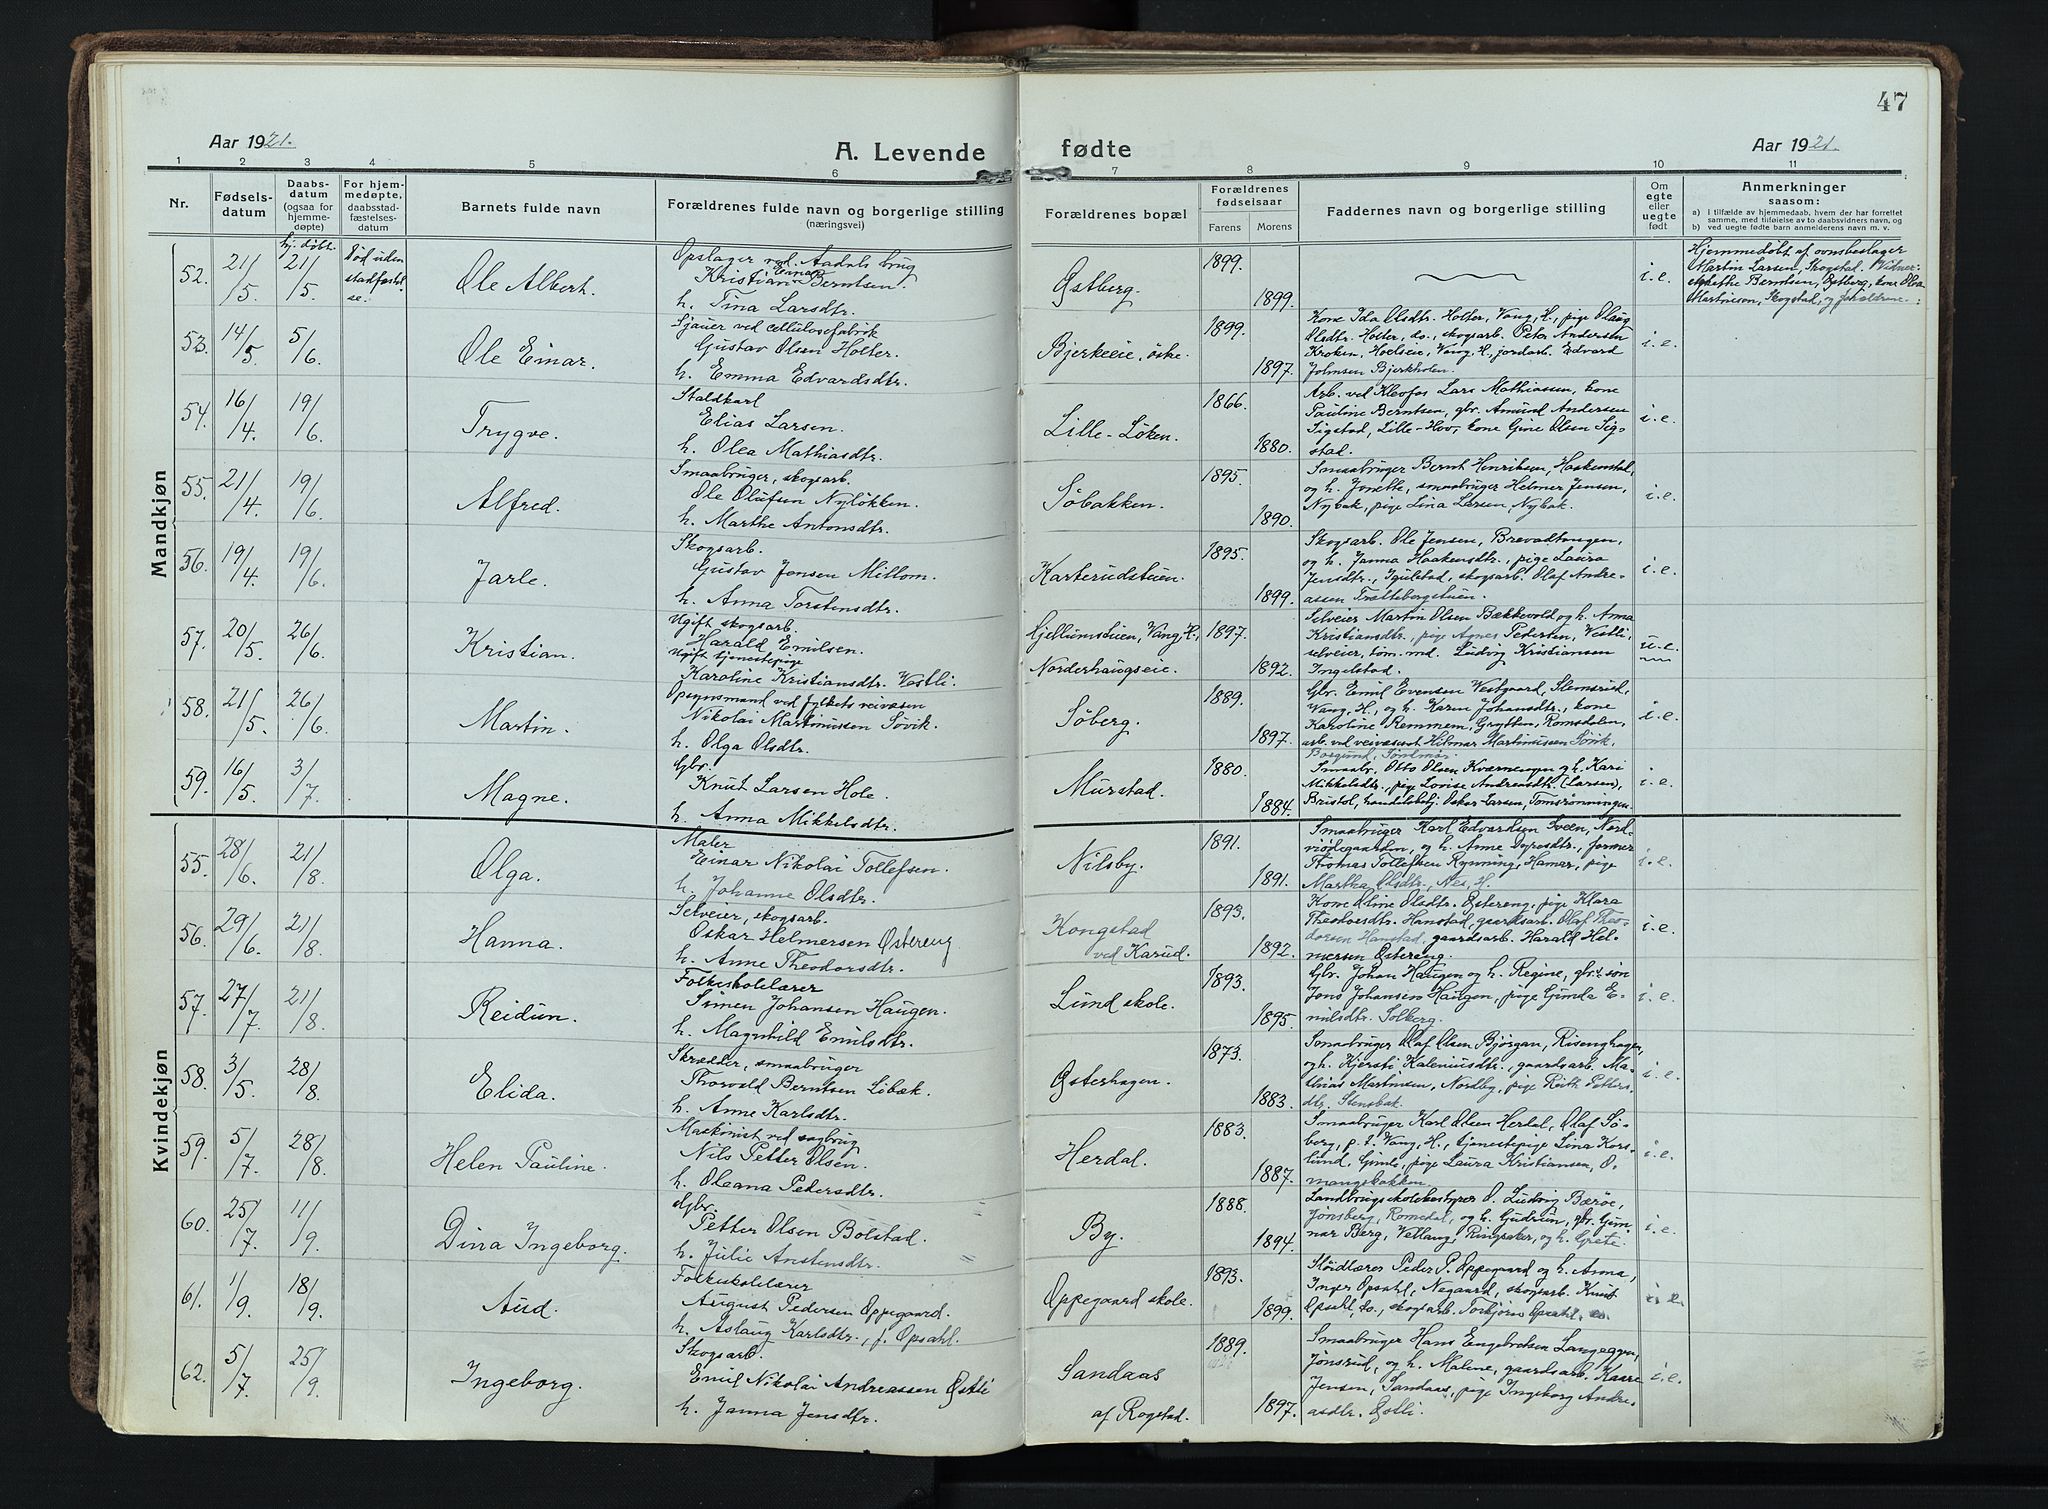 47
Aar 1921.
A. Levende fødte
Aar 1921.
1 2 3 4 5 6 7 8 9 10 11
Nr.
Fødsels-
datum
Daabs-
datum
(ogsaa for
hjemme-
døpte)
For hjem-
medøpte,
daabsstad-
fæstelses-
datum
Barnets fulde navn
Forældrenes fulde navn og borgerlige stilling
(næringsvei)
Forældrenes bopæl
Forældrenes
fødselsaar
Farens Morens
Faddernes navn og borgerlige stilling
Om
egte
eller
uegte
født
Anmerkninger
saasom:
a) i tilfælde av hjemmedaab, hvem der har forrettet
samme, med tilføielse av to daabsvidners navn, og
b) ved uegte fødte barn anmelderens navn m. v.
Mandkjøn
52. 21/5. hj. døbt 21/5 Død uden
stadfæstel-
se.
Ole Albert.
Opslager ved Aadals brug
Kristian Einar Berntsen.
h. Tina Larsdtr.
Østberg.
1899.
1899.
i. e.
Hjemmedøbt af ovnsbeslager
Martin Larsen, Skogstad. Vidner:
Berntsen, Østberg, kone Olea
Martinsen, Skogstad, og forældrene.
53. 14/5 5/6
Ole Einar.
Sjauer ved cellulosefabrik
Gustav Olsen Holter.
h. Emma Edvardsdtr.
Bjerkeeie, østre.
1899.
1897.
Kone Ida Olsdtr. Holter, Vang, H., pige Olaug
Olsdtr. Holter, do., skogsarb. Peter Andersen
Kroken, Hoelseie, Vang, H., jordarb. Edvard
Johnsen Bjerkholen.
i. e.
54. 16/4. 19/6
Trygve.
Staldkarl
Elias Larsen.
h. Olea Mathiasdtr.
Lille-Løken.
1866.
1880.
Arb. ved Klevfos Lars Mathiassen, kone
Pauline Berntsen, gbr. Amund Andersen
Sigstad, Lille-Hov, kone Gine Olsen Sig-
stad.
i. e.
55. 21/4. 19/6
Alfred.
Smaabruger, skogsarb.
Ole Olufsen Nyløkken.
h. Marthe Antonsdtr.
Søbakken.
1895.
1890.
Smaabruger Bernt Henriksen, Haakenstad,
og h. Jonette, smaabruger Helmer Jensen,
Nybak, pige Lina Larsen, Nybak.
i. e.
56. 19/4 19/6
Jarle.
Skogsarb.
Gustav Jensen Mittom.
h. Anna Torstensdtr.
Karterudstuen.
1895.
1899.
Skogsarb. Ole Jensen, Brevadtangen,
og h. Janna Haakensdtr., pige Laura
Jensdtr., Igulstad, skogsarb. Olaf Andre-
assen Trættebergstuen.
i. e.
57. 20/5. 26/6
Kristian.
Ugift skogsarb.
Harald Emilsen.
Ugift tjenestepige
Karoline Kristiansdtr. Vestli.
Gjellumstuen, Vang, H.,
Norderhaugseie.
1897.
1892.
Selveier Martin Olsen Bækkevold og h. Anna
Kristiansdtr., pige Agnes Pedersen, Vestli,
selveier, tøm. md. Ludvig Kristiansen
Ingelstad.
u. e.
58. 21/5. 26/6
Martin.
Opsynsmand ved fylkets veivæsen
Nikolai Martinussen Søvik.
h. Olga Olsdtr.
Søberg.
1889.
1897.
Gbr. Emil Evensen Vestgaard, Slemsrud,
Vang, H., og h. Karen Johansdtr., kone
Karoline Remmem, Grytten, Romsdalen,
arb. ved veivæsenet Hilmar Martinussen Søvik,
Borgund, Søndmør.
i. e.
59. 16/5. 3/7
Magne.
Gbr.
Knut Larsen Hole.
h. Anna Mikkelsdtr.
Murstad.
1880.
1884.
Smaabr. Otto Olsen Kværnengen og h. Kari
Mikkelsdtr., pige Lovise Andreasdtr. (Larsen),
Bristol, handelsbetj. Oskar Larsen, Tomsrønningen.
i. e.
Kvindekjøn
55. 28/6. 21/8
Olga.
Maler
Einar Nikolai Tollefsen.
h. Johanne Olsdtr.
Nilsby.
1891.
1891.
Smaabruger Karl Edvardsen Sveen, Nord-
viødegaarden, og h. Anne Dyresdtr., former
Thomas Tollefsen Rynning, Hamar, pige
Martha Olsdtr., Nes, H.
i. e.
56. 29/6 21/8
Hanna.
Selveier, skogsarb.
Oskar Helmersen Østereng
h. Anne Theodorsdtr.
Kongstad
ved Karud.
1893.
1892.
Kone Oline Olsdtr. Østereng, pige Klara
Theodorsdtr. Hanstad, gaardsarb. Olaf Theo-
dorsen Hanstad, gaardsarb. Harald Hel-
mersen Østereng.
i. e.
57. 27/7 21/8
Reidun.
Folkeskolelærer
Simen Johansen Haugen.
h. Magnhild Emilsdtr.
Lund skole.
1893.
1895.
Gbr. Johan Haugen og h. Regine, gbr.s søn
Jens Johansen Haugen, pige Gunda E-
milsdtr. Solberg.
i. e.
58. 3/5 28/8
Elida.
Skrædder, smaabruger
Thorvald BerntsenLøbak.
h. Anne Karlsdtr.
Østerhagen.
1873.
1883.
Smaabruger Olaf Olsen Bjørgan, Risenghagen,
og h. Kjersti Kaleniusdtr., gaardsarb. Ma-
thias Martinsen, Nordby, pige Ruth Petters-
dtr. Stensbak.
i. e.
59. 5/7 28/8
Helen Pauline.
Maskinist ved sagbrug
Nils Petter Olsen.
h. Oleana Pedersdtr.
Herdal.
1883.
1887.
Smaabruger Karl Olsen Herdal, Olaf Sø-
berg, p. t. Vang, H., tjenestepige Lina Kors-
lund, Gimle, pige Laura Kristiansen, O-
mangsbakken.
i. e.
60. 25/7 11/9
Dina Ingeborg.
Gbr.
Petter Olsen Bolstad.
h. Julie Anstensdtr.
By.
1888.
1894.
Landbrugsskolebestyrer O. Ludvig Bærøe,
Jønsberg, Romedal, og h. Gudrun, gbr. Gun-
nar Berg, Vetlang, Ringsaker, og h. Grete.
i. e.
61. 1/9 18/9
Aud.
Folkeskolelærer
August Pedersen Oppegaard.
h. Aslaug Karlsdtr., f. Opsahl.
Oppegaard skole.
1893.
1899.
Sløidlærer Peder P. Oppegaard og h. Anna,
Inger Opsahl, Nøgaard, skogsarb. Knut
Opsahl, do., skogsarb. Torbjørn Opsahl, do.
i. e.
62. 5/7 25/9
Ingeborg.
Skogsarb.
Emil Nikolai Andreassen Østli
h. Janna Jensdtr.
Sandaas
af Rogstad.
1889.
1897.
Smaabruger Hans Engebretsen Langeggen,
Jønsrud, og h. Malene, gaardsarb. Kaare
Jensen, Sandaas, pige Ingeborg Andre-
asdtr. Østli.
i. e.